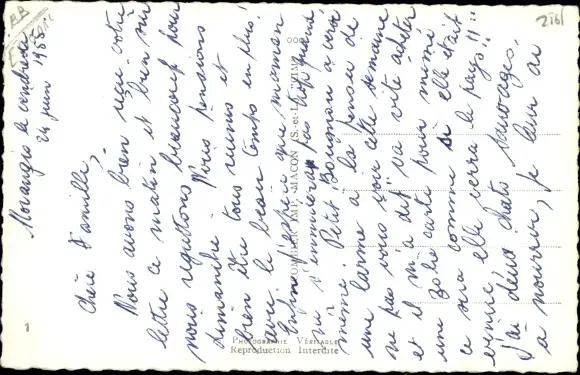 Morangis le vendredi
24 juin 1955
Chère Famille,
Nous avons bien reçu votre
lettre ce matin et bien sûr
nous regrettons beaucoup pour
dimanche. Nous pensions
bien être tous réunis et
avec le beau temps en plus!
Enfin j'espère que maman
ne s'ennuiera pas trop quand
même. Petit Bougnan a versé
une larme à la pensée de
ne pas vous voir cette semaine
et il m'a dit "va vite acheter
une jolie carte pour mémé
ce sera comme si elle était
venue elle verra le pays"!!
J'ai deux chats sauvages,
à nourrir, je leur ai
COMBIER IMP. MACON (S.-et-L.)
PHOTOGRAPHIE VÉRITABLE
Reproduction Interdite
1
216